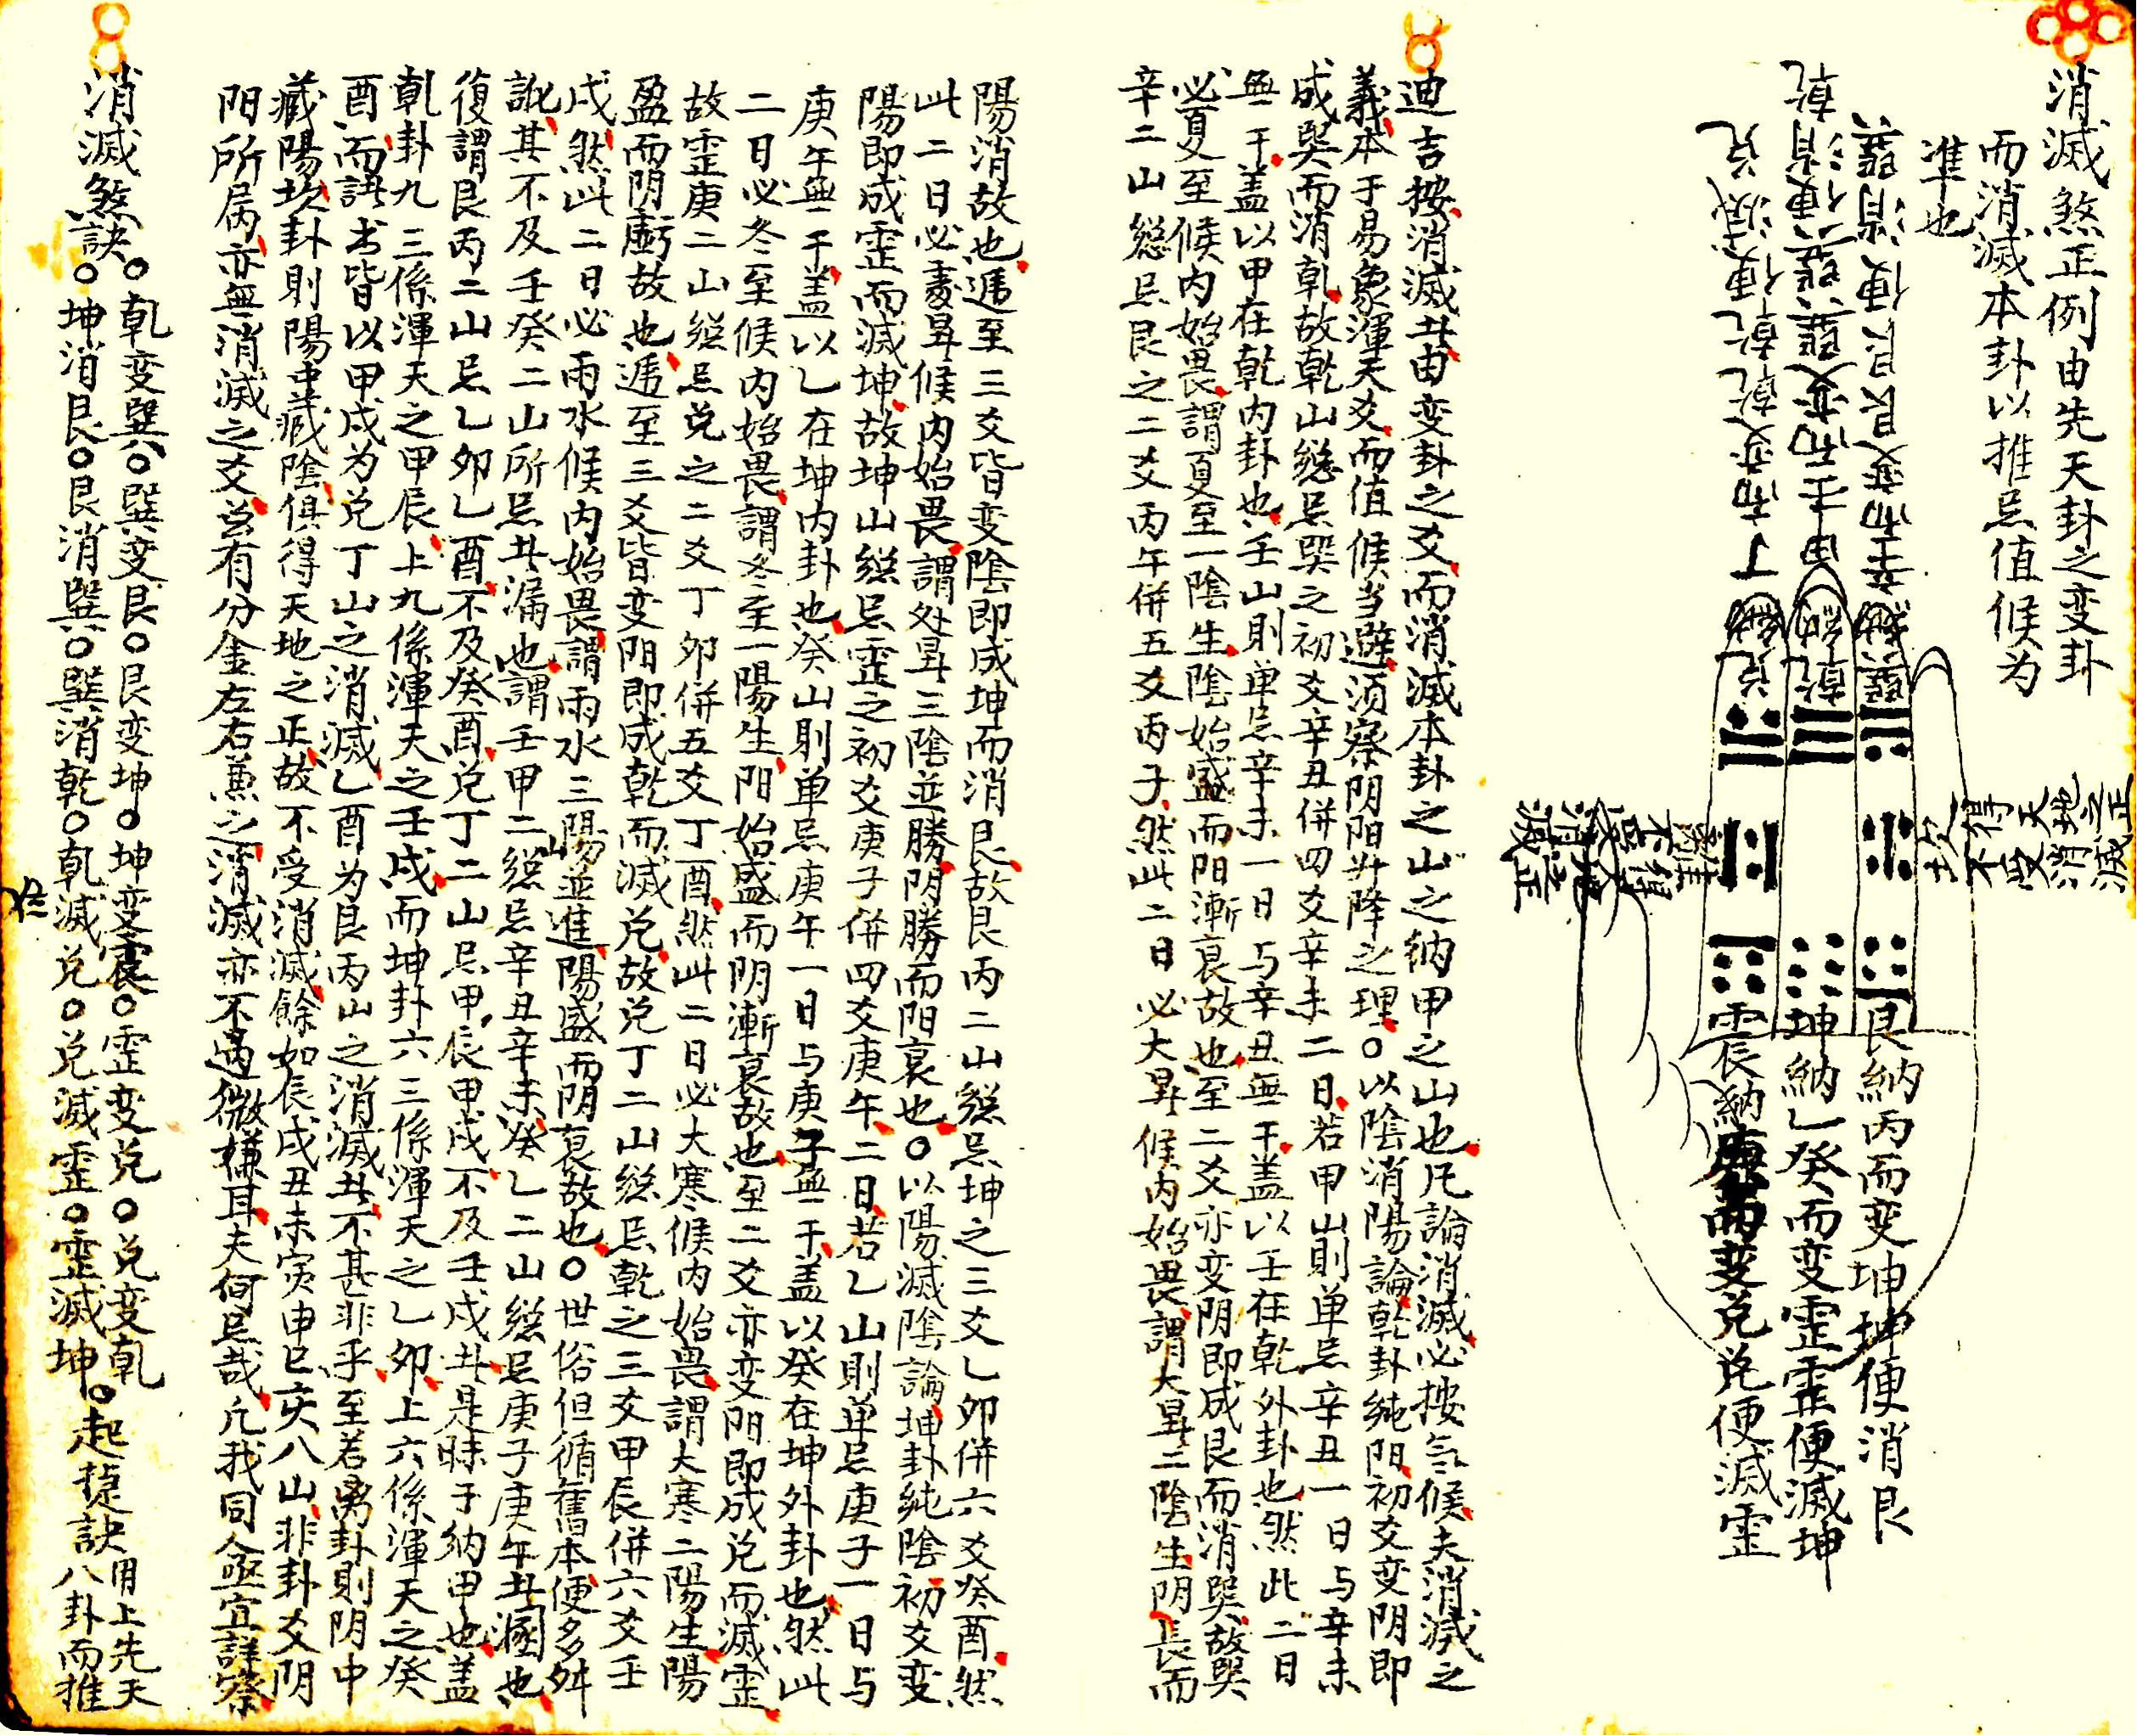 消滅煞正例由先天卦之变卦
而消滅本卦以推忌值候为
準也
巽納辛而变艮艮便消巽
乾納甲壬而变巽巽便消乾
兌納丁而变乾乾便滅兌
坎得天地之正
不受消滅
離得天地正
不受消滅
艮納丙而变坤坤便消艮
坤納乙癸而变霊霊便滅坤
震納庚而变兌兌便滅霊
迪吉按消滅其由变卦之爻而消滅本卦之山之納甲之山也凡論消滅必按気候夫消滅之
義本于易象渾天爻而值候当避须察阴阳升降之理○以陰消陽論乾卦純阳初爻变阴即
成巽而消乾故乾山緫忌巽之初爻辛丑併四爻辛未二日若甲山則单忌辛丑一日与辛未
無干盖以甲在乾内卦也壬山則单忌辛未一日与辛丑無干盖以壬在乾外卦也然此二日
必夏至候内始畏謂夏至一陰生陰始盛而阳漸衰故也至二爻亦变阴即成艮而消巽故巽
辛二山緫忌艮之二爻丙午併五爻丙子然此二日必大暑候内始畏謂大暑二陰生阴長而
陽消故也逓至三爻皆变陰即成坤而消艮故艮丙二山緫忌坤之三爻乙卯併六爻癸酉然
此二日必處暑候内始畏謂处暑三陰並勝阴勝而阳衰也○以陽滅陰論坤卦純陰初爻变
陽即成霊而滅坤故坤山緫忌霊之初爻庚子併四爻庚午二日若乙山則单忌庚子一日与
庚午無干盖以乙在坤内卦也癸山則单忌庚午一日与庚子無干盖以癸在坤外卦也然此
二日必冬至候内始畏謂冬至一陽生阳始盛而阴漸衰故也至二爻亦变阳即成兌而滅霊
故霊庚二山緫忌兌之二爻丁卯併五爻丁酉然此二日必大寒候内始畏謂大寒二陽生陽
盈而阴虧故也逓至三爻皆变阳即成乾而滅兌故兌丁二山緫忌乾之三爻甲辰併六爻壬
戌然此二日必雨水候内始畏謂雨水三陽並進陽盛而阴衰故也○世俗但循舊本便多舛
訛其不及壬癸二山所忌其漏也謂壬甲二山緫忌辛丑辛未癸乙二山緫忌庚子庚午其溷也
復謂艮丙二山忌乙卯乙酉不及癸酉兌丁二山忌甲辰甲戌不及壬戌其是昧于納甲也盖
乾卦九三係渾天之甲辰上九係渾天之壬戌而坤卦六三係渾天之乙卯上六係渾天之癸
酉而諸书皆以甲戌为兌丁山之消滅乙酉为艮丙山之消滅其不甚非乎至若离卦則阴中
藏陽坎卦則陽中藏陰俱得天地之正故不受消滅餘如辰戌丑未寅申巳亥八山非卦爻阴
阳所属亦無消滅之爻兹有分金左右兼之消滅亦不過微嫌耳夫何忌哉凡我同人亟宜詳察
消滅煞訣○乾变巽○巽变艮○艮变坤○坤变震○霊变兌○兌变乾
○坤消艮○艮消巽○巽消乾○乾滅兌○兌滅霊○霊滅坤
○起掟訣用上先天八卦而推